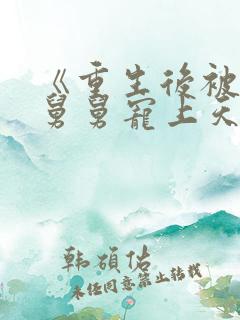 《重生後被
舅舅寵上天
韩碩佑
未经同意禁止转载